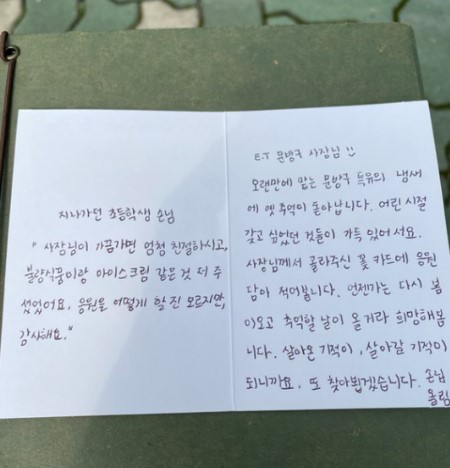 지나가던 초등학생 손님
" 사장님이 가끔가면 엄청 친절하시고,
불량식품이랑 아이스크림 같은것 더 주
셨었어요. 응원을 어떻게 할 진 모르지만,
감사해요."
E.T 문방구 사장님 :)
오랜만에 맡는 문방구 특유의 냄새
에 옛 추억이 돋아납니다. 어린 시절
갖고 싶었던 것들이 가득 있어서요.
사장님께서 골라주신 꽃 카드에 응원
담아 적어봅니다. 언젠가는 다시 봄
이오고 추억할 날이 올 거라 희망해봅
니다. 살아온 기적이, 살아갈 기적이
되니까요. 또 찾아뵙겠습니다. 손님
올림